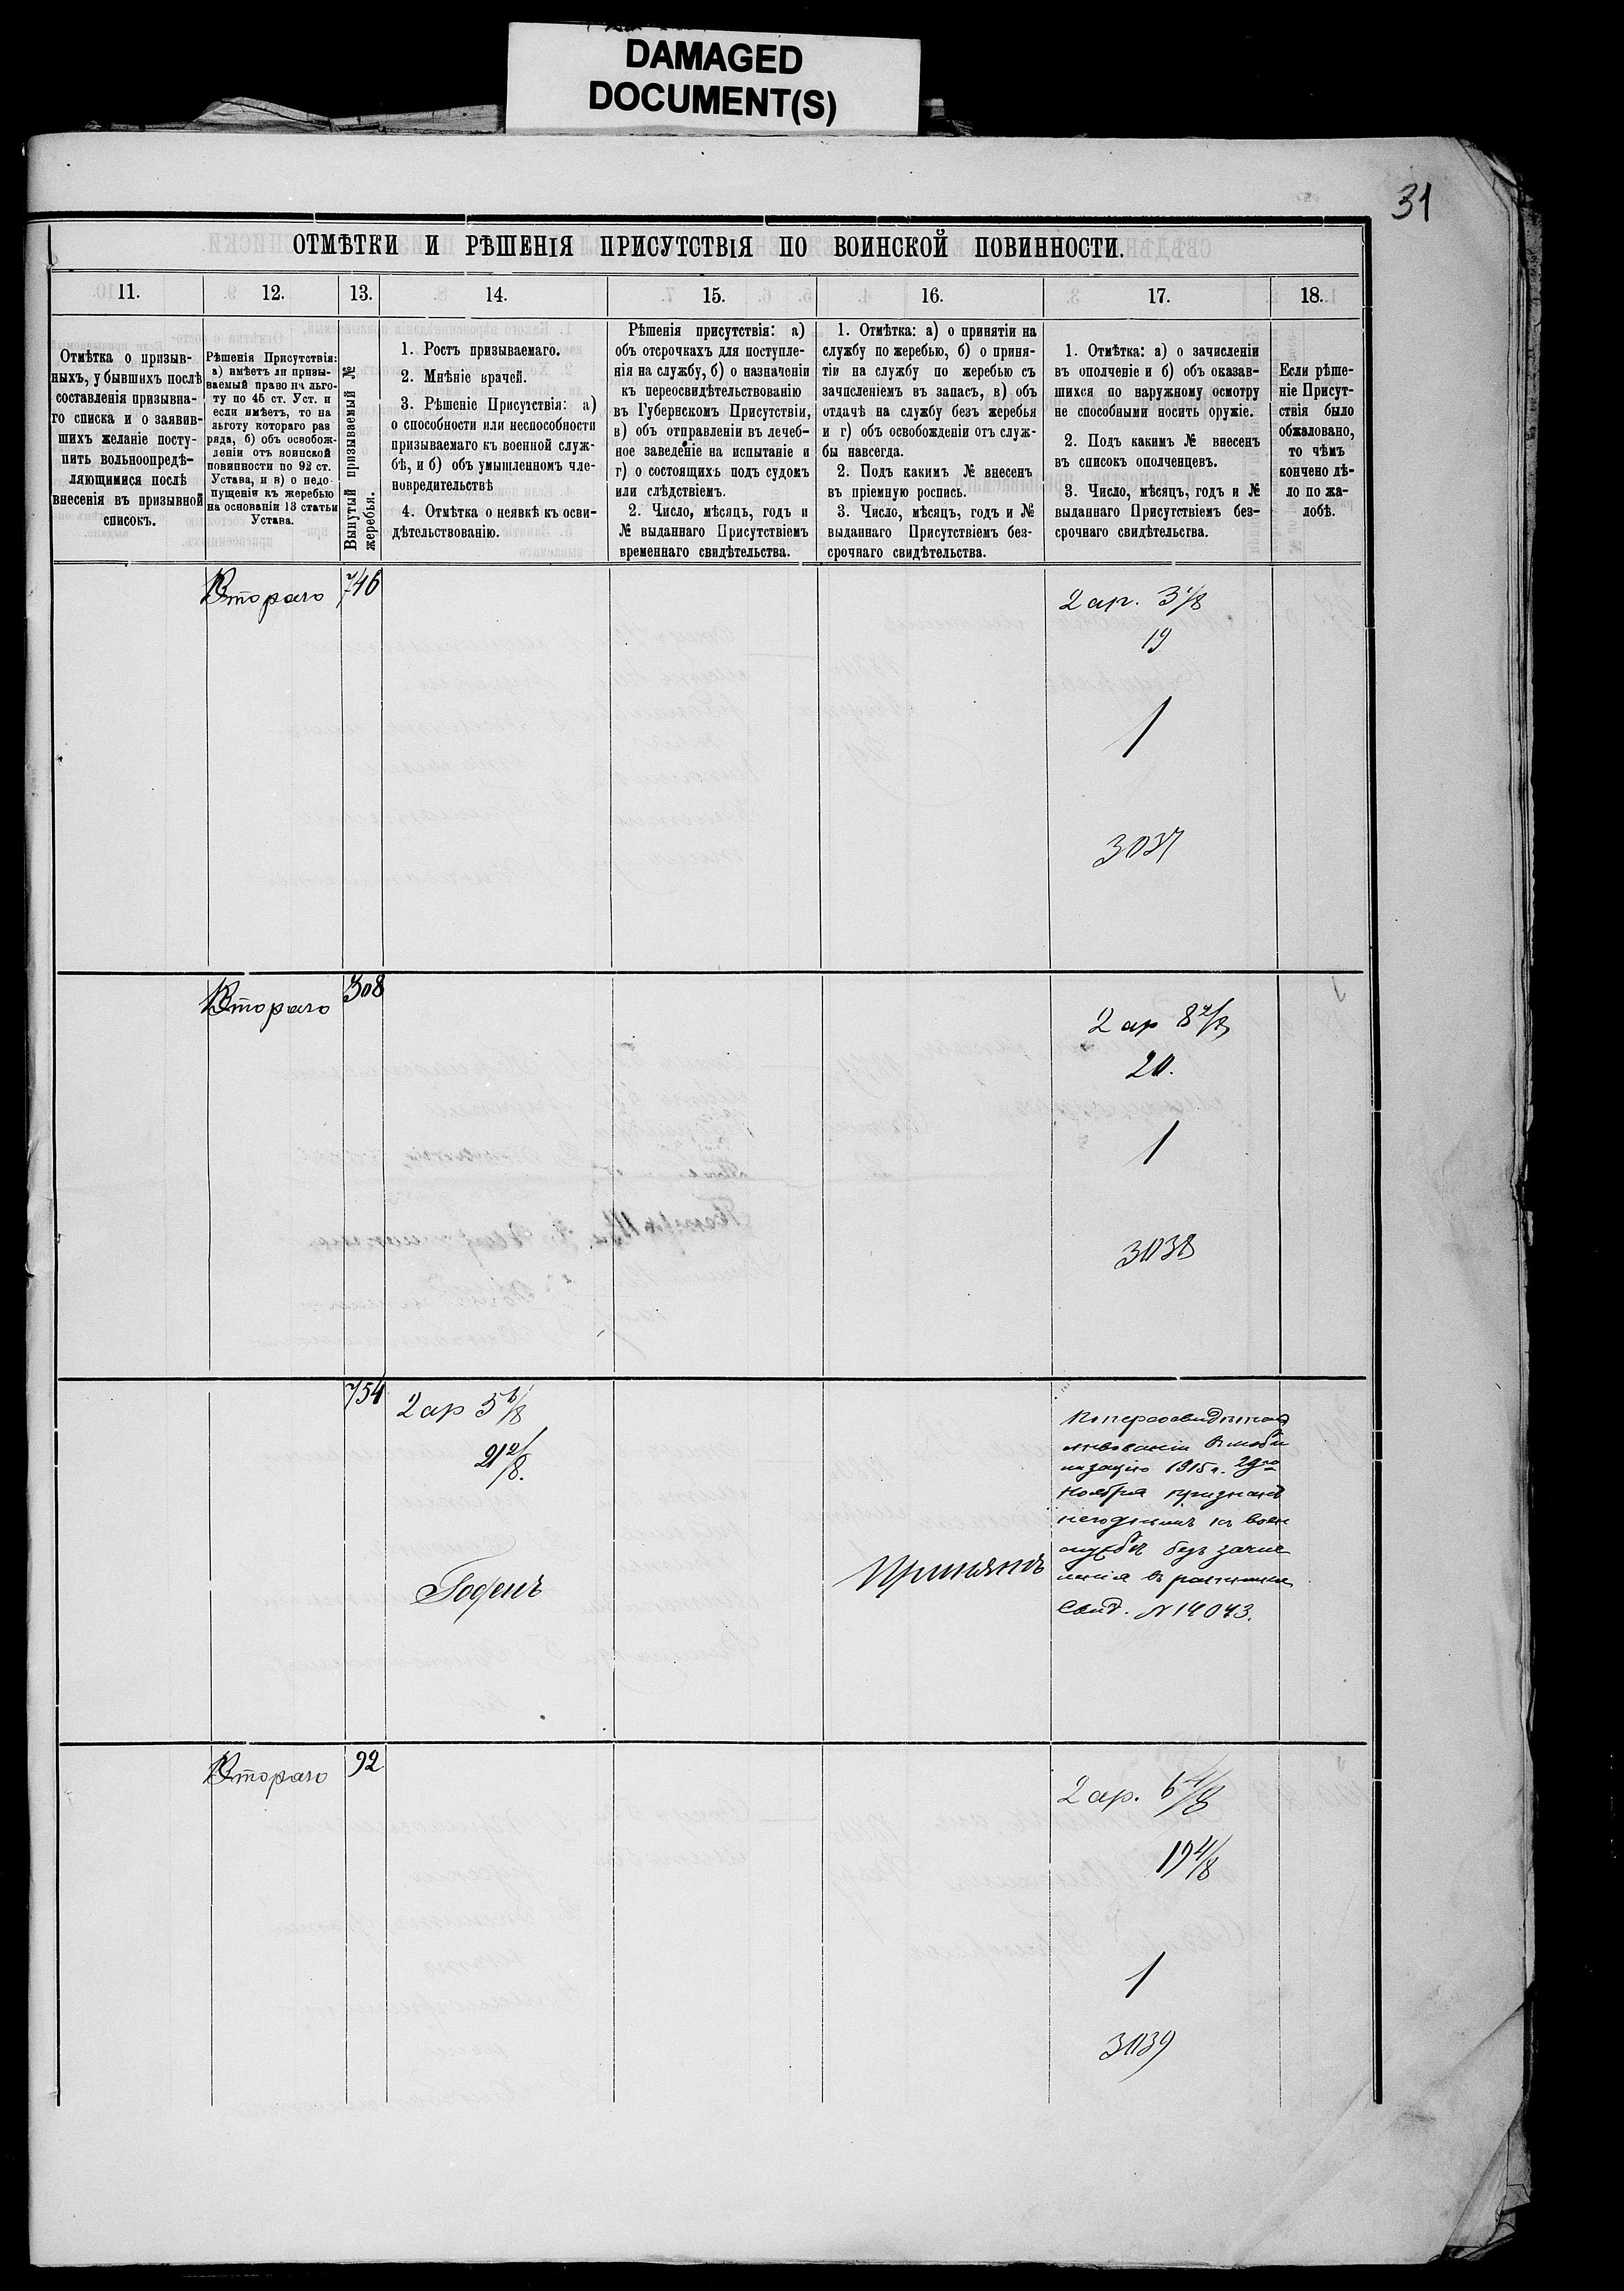 DAMAGED
DOCUMENT(S)
31
ОТМѢТКИ И РѢШЕНІЯ ПРИСУТСТВІЯ ПО ВОИНСКОЙ ПОВИННОСТИ.
11.
12.
13.
14.
15.
16.
17.
18.
Отмѣтка о призыв-
ныхъ, у бывшихъ послѣ
составленія призывна-
го списка и о заявив-
шихъ желаніе посту-
пить вольноопредѣ-
ляющимися послѣ
внесенія въ призывной
списокъ.
Рѣшенія Присутствія:
а) имѣетъ ли призы-
ваемый право на льго-
ту по 45 ст. Уст. и
если имѣетъ, то на
льготу котораго раз
ряда, б) объ освобож-
деніи отъ воинской
повинности по 92 ст.
Устава, и в) о недо-
пущеніи къ жеребью
на основаніи 13 статьи
Устава.
Вынутый призываемый №
жеребья.
1. Ростъ призываемаго.
2. Мнѣніе врачей.
3. Рѣшеніе Присутствія: а)
о способности или неспособности
призываемаго къ военной служ-
бѣ, и б) объ умышленномъ чле-
новредительствѣ
4. Отмѣтка о неявкѣ къ осви-
дѣтельствованію.
Рѣшенія присутствія: а)
объ отсрочкахъ для поступле-
нія на службу, б) о назначеніи
къ переосвидѣтельствованію
въ Губернскомъ Присутствіи,
в) объ отправленіи въ лечеб-
ное заведеніе на испытаніе и
г) о состоящихъ подъ судомъ
или слѣдствіемъ.
2. Число, мѣсяцъ, годъ и
№ выданнаго Присутствіемъ
временнаго свидѣтельства.
1. Отмѣтка: а) о принятіи на
службу по жеребью, б) о приня-
тіи на службу по жеребью съ
зачисленіемъ въ запасъ, в) объ
отдачѣ на службу безъ жеребья
и г) объ освобожденіи отъ служ-
бы навсегда.
2. Подъ какимъ № внесенъ
въ пріемную роспись.
3. Число, мѣсяцъ, годъ и №
выданнаго Присутствіемъ без-
срочнаго свидѣтельства.
1. Отмѣтка: а) о зачисленіи
въ ополченіе и б) объ оказав-
шихся по наружному осмотру
не способными носить оружіе.
2. Подъ какимъ № внесенъ
въ списокъ ополченцевъ.
3. Число, мѣсяцъ, годъ и №
выданнаго Присутствіемъ без-
срочнаго свидѣтельства.
Если рѣше-
ніе Присут-
ствія было
обжаловано,
то чѣмъ
кончено дѣ-
ло по жа-
лобѣ.
Втораго
746
2 ар.
19
1
3037
Втораго
308
2 ар 8
20.
1
3038
754
2 ар 5
21 2/8.
Годенъ
Принятъ
1915 г. 29го
Ноября признанъ
негоднымъ къ воен
службѣ безъ зачис
ленія въ ратники
Свид. № 14043.
Втораго
92
2 ар. 6 4/8
19 4/8
1
3039